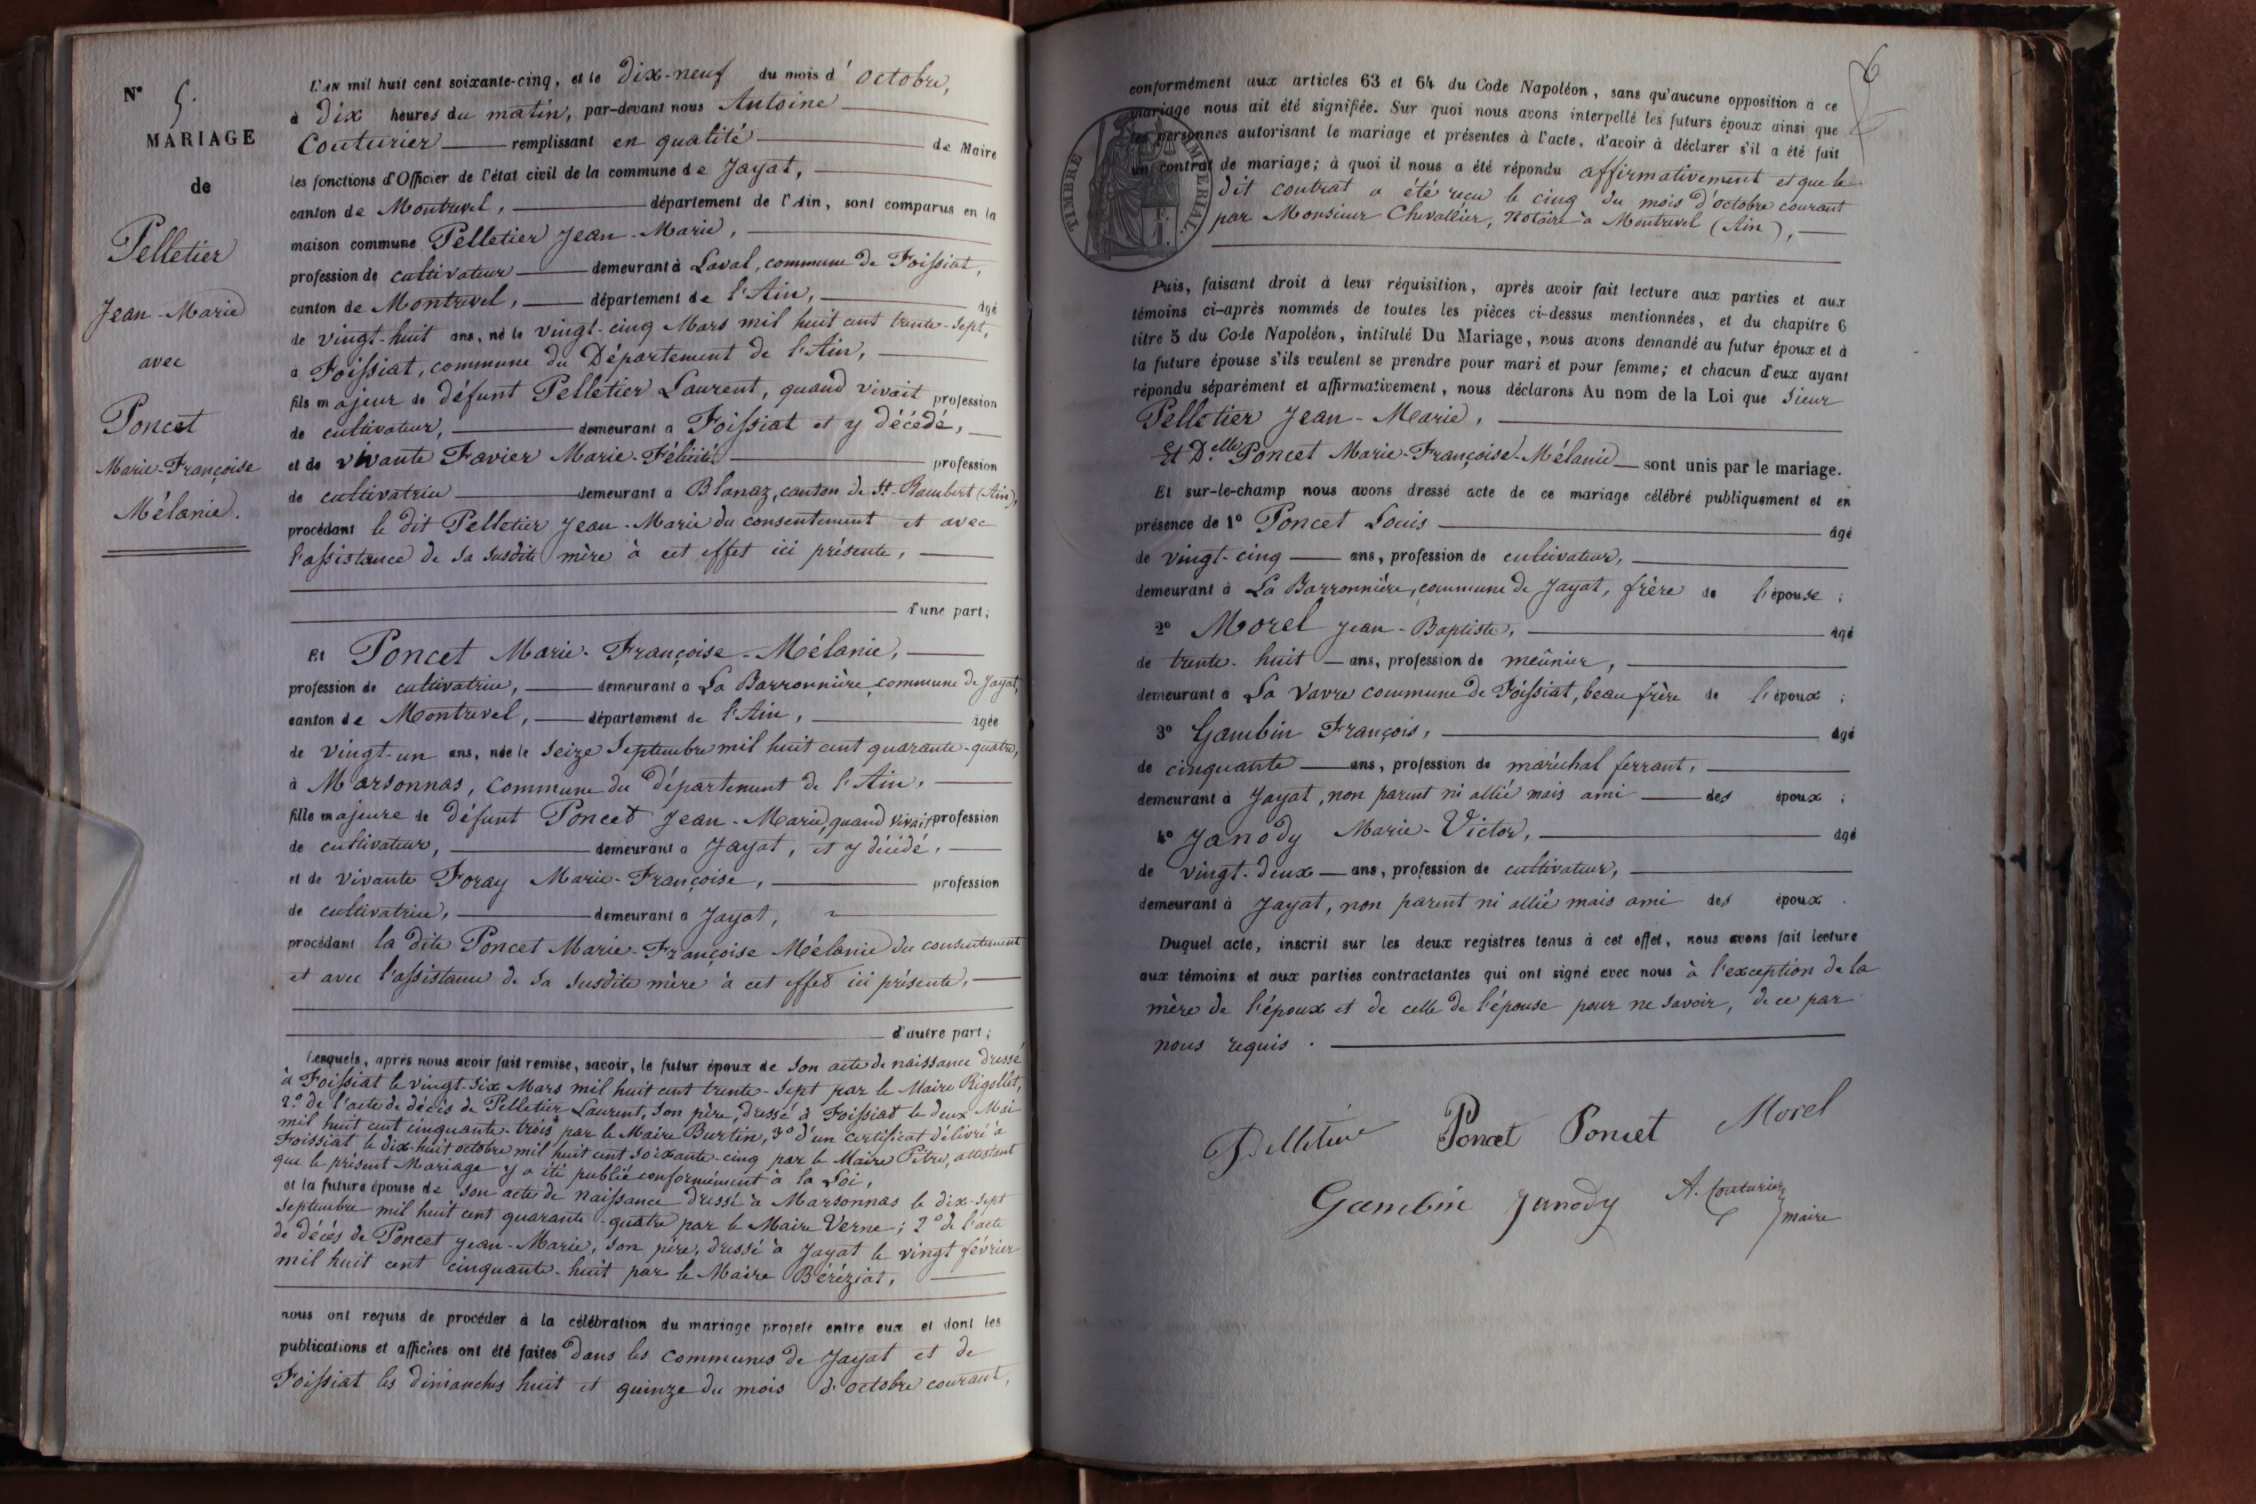 N° 5.
MARIAGE
de
Pelletier
Jean-Marie
avec
Poncet
Marie-Françoise
Mélanie.
L'AN mil huit cent soixante-cinq, et le dix-neuf du mois d'octobre,
à dix heures du matin, par-devant nous Antoine
Couturier remplissant en qualité de Maire
les fonctions d'Officier de l'état civil de la commune de Jayat,
canton de Montrevel, département de l'Ain, sont comparus en la
maison commune Pelletier Jean-Marie,
profession de cultivateur demeurant à Laval, commune de Foissiat,
canton de Montrevel, département de l'Ain, âgé
de vingt-huit ans, né le vingt-cinq Mars mil huit cent trente-sept,
à Foissiat, commune du Département de l'Ain,
fils majeur de défunt Pelletier Laurent, quand vivait profession
de cultivateur, demeurant à Foissiat et y décédé,
et de vivante Favier Marie-Félicité profession
de cultivatrice demeurant à Blanaz, canton de St-Rambert (Ain),
procédant le dit Pelletier Jean-Marie du consentement et avec
l'assistance de sa susdite mère à cet effet ici présente,
d'une part;
Et Poncet Marie-Françoise-Mélanie,
profession de cultivatrice, demeurant à La Barronnière, commune de Jayat,
canton de Montrevel, département de l'Ain, âgée
de vingt-un ans, née le seize Septembre mil huit cent quarante-quatre,
à Marsonnas, Commune du département de l'Ain,
fille majeure de défunt Poncet Jean-Marie, quand vivait profession
de cultivateur, demeurant à Jayat, et y décédé,
et de vivante Foray Marie-Françoise, profession
de cultivatrice, demeurant à Jayat,
procédant la dite Poncet Marie-Françoise Mélanie du consentement
et avec l'assistance de sa susdite mère à cet effet ici présente,
d'autre part;
Lesquels, après nous avoir fait remise, savoir, le futur époux de son acte de naissance dressé
à Foissiat le vingt-six Mars mil huit cent trente-sept par le Maire Rigollet,
2° de l'acte de décès de Pelletier Laurent, son père, dressé à Foissiat le deux Mai
mil huit cent cinquante-trois par le Maire Burtin, 3° d'un certificat délivré à
Foissiat le dix-huit octobre mil huit cent soixante-cinq par le Maire Pitre, attestant
que le présent Mariage y a été publié conformément à la Loi,
et la future épouse de son acte de naissance dressé à Marsonnas le dix-sept
Septembre mil huit cent quarante-quatre par le Maire Verne; 2° de l'acte
de décès de Poncet Jean-Marie, son père, dressé à Jayat le vingt février
mil huit cent cinquante-huit par le Maire Béréziat,
nous ont requis de procéder à la célébration du mariage projeté entre eux et dont les
publications et affiches ont été faites dans les communes de Jayat et de
Foissiat les dimanches huit et quinze du mois d'octobre courant,
6
conformément aux articles 63 et 64 du Code Napoléon, sans qu'aucune opposition à ce
mariage nous ait été signifiée. Sur quoi nous avons interpellé les futurs époux ainsi que
les personnes autorisant le mariage et présentes à l'acte, d'avoir à déclarer s'il a été fait
un contrat de mariage; à quoi il nous a été répondu affirmativement et que le
dit contrat a été reçu le cinq du mois d'octobre courant
par Monsieur Chevallier, Notaire à Montrevel (Ain),
TIMBRE IMPERIAL
Puis, faisant droit à leur réquisition, après avoir fait lecture aux parties et aux
témoins ci-après nommés de toutes les pièces ci-dessus mentionnées, et du chapitre 6
titre 5 du Code Napoléon, intitulé Du Mariage, nous avons demandé au futur époux et à
la future épouse s'ils veulent se prendre pour mari et pour femme; et chacun d'eux ayant
répondu séparément et affirmativement, nous déclarons Au nom de la Loi que Sieur
Pelletier Jean-Marie,
Et Delle Poncet Marie-Françoise-Mélanie sont unis par le mariage.
Et sur-le-champ nous avons dressé acte de ce mariage célébré publiquement et en
présence de 1° Poncet Louis âgé
de vingt-cinq ans, profession de cultivateur,
demeurant à La Barronnière, commune de Jayat, frère de l'épouse;
2° Morel Jean-Baptiste, âgé
de trente-huit ans, profession de meûnier,
demeurant à La Vavre commune de Foissiat, beau frère de l'époux;
3° Gambin François, âgé
de cinquante ans, profession de maréchal ferrant,
demeurant à Jayat, non parent ni allié mais ami des époux;
4° Janody Marie-Victor, âgé
de vingt-deux ans, profession de cultivateur,
demeurant à Jayat, non parent ni allié mais ami des époux.
Duquel acte, inscrit sur les deux registres tenus à cet effet, nous avons fait lecture
aux témoins et aux parties contractantes qui ont signé avec nous à l'exception de la
mère de l'époux et de celle de l'épouse pour ne savoir, de ce par
nous requis.
Pelletier Poncet Poncet Morel
Gambin Janody A. Couturier
maire